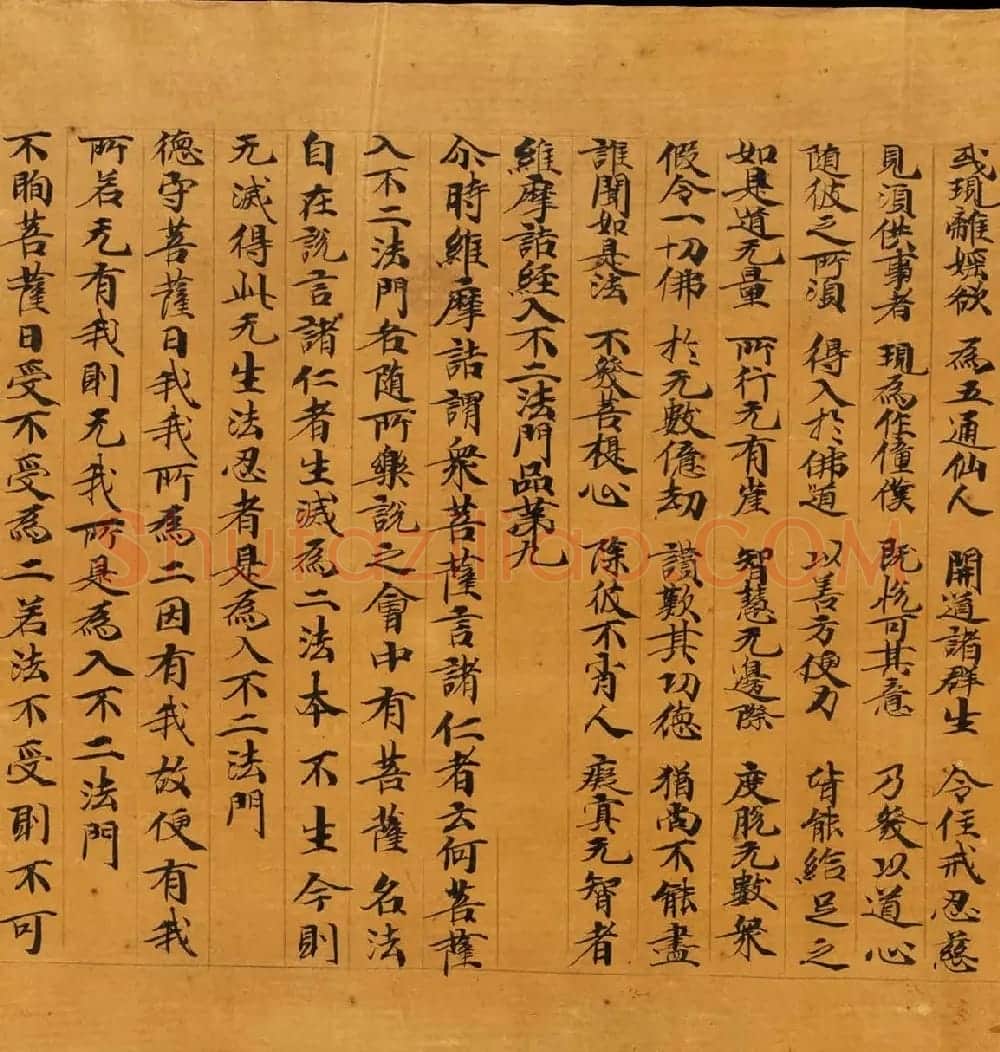 或現離婬欲 為五通仙人 開道諸群生 令住戒忍慈
見湏供事者 現為作僮僕 既恱可其意 乃發以道心
随彼之所湏 得入於佛道 以善方便力 皆能給足之
如是道无量 所行无有崖 智慧无邊際 度脫无數衆
假令一切佛 於无數億劫 讃歎其功徳 猶尚不能盡
誰聞如是法 不發菩提心 除彼不肖人 癡冥无智者
維摩詰經入不二法門品苐九
尒時維摩詰謂衆菩薩言諸仁者云何菩薩
入不二法門各随所樂說之會中有菩薩名法
自在說言諸仁者生滅為二法本不生今則
无滅得此无生法忍者是為入不二法門
徳守菩薩曰我我所為二因有我故便有我
所若无有我則无我所是為入不二法門
不眴菩薩曰受不受為二若法不受則不可
Shufaziliao.COM